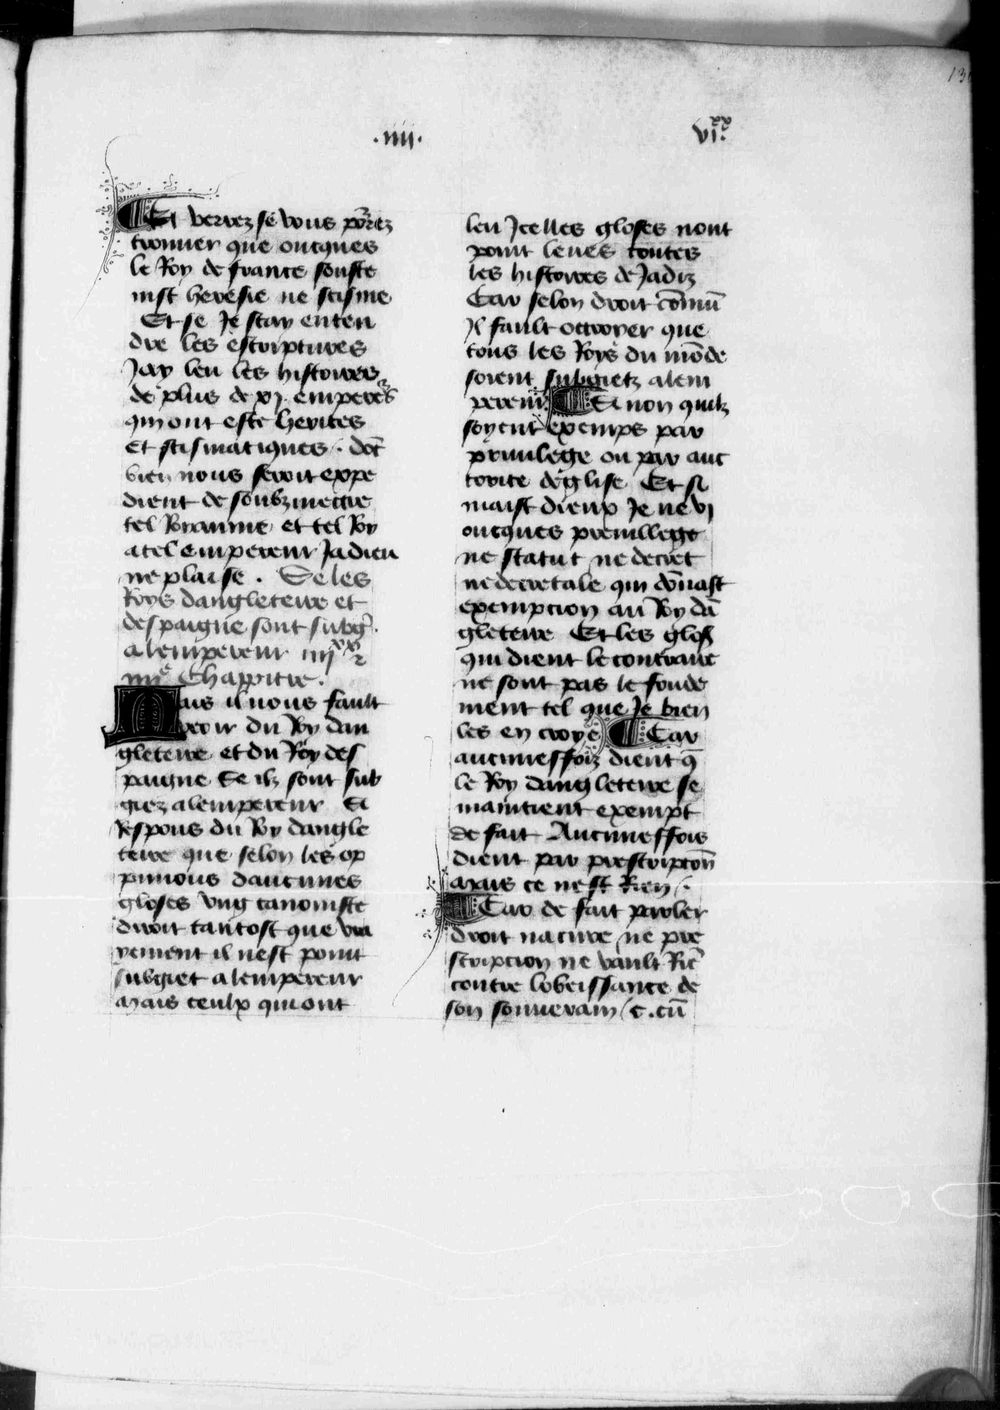 .iiii.
vi.xx
130
Et verrez se vous porrez
trouuer que oncques
le Roy de france souste
nist heresie ne scisme
Et se Je scay enten
dre les escriptures
Jay leu les histoires
de plus de xj. emperes
qui ont este herites
Et scismatiques . dot
bien nous seroit expe
dient de soubzmectre
tel Royaume et tel Roy
a tel empereur Ja dieu
ne plaise . Se les
Roys dangleterre et
despaigne sont subg.
a lempereur iiiixx
iiiie Chappitre.
Mais il nous fault
veoir du Roy dan
gleterre et du Roy des
paigne Se ilz sont sub
giez a lempereur Et
Respons du Roy dangle
terre que selon les op
pinions daucunes
gloses vng canoniste
diroit tantost que vra
yement il nest point
subgiet a lempereur
Mais ceulx qui ont
leu Jcelles gloses nont
point leues toutes
les histoires de Jadiz
Car selon droit comu
Jl fault octroyer que
tous les Roys du mode
soient subgietz a lem
pereur. Et non quilz
soyent exemps par
priuilege ou par auc
torite deglise Et si
maist dieux Je ne vj
oncques preuillege
ne statut ne decret
ne decretale qui donast
exempcion au Roy da
gleterre Et les glos
qui dient le contraire
ne sont pas le fonde
ment tel que Je bien
les en croye Car
aucuneffoiz dient q
le Roy dangleterre se
maintient exempt
de fait Aucuneffois
dient par prescripcon
Mais ce nest Rien .
Car de fait parler
droit nature ne pre
scripcion ne vault Ric
contre lobeissance de
son souuerain / c. cu